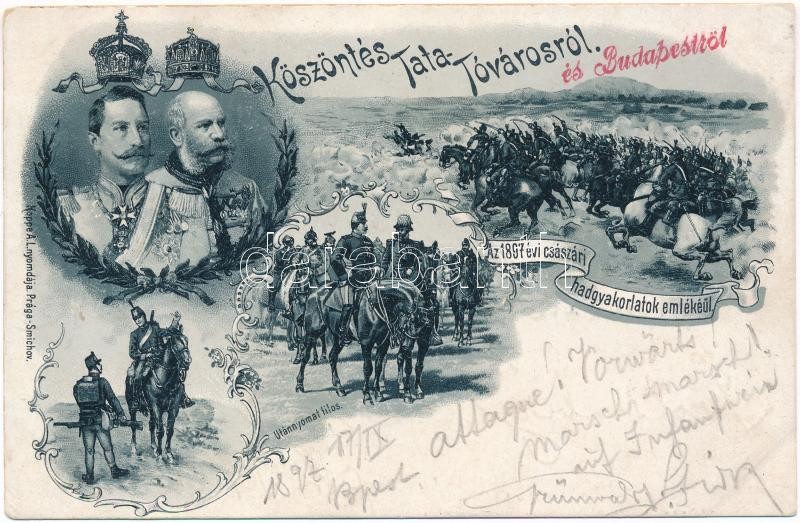 Köszöntés Tata-Tóvárosról.
és Budapestről
Az 1897 évi császári
hadgyakorlatok emlékéül.
A.L. nyomdája Prága-Smichov.
Utánnyomat tilos.
darabanth.com
1897 17/IX
Bpest.
attaque! Vorwärts!
marsch! marsch!
auf Infanterie